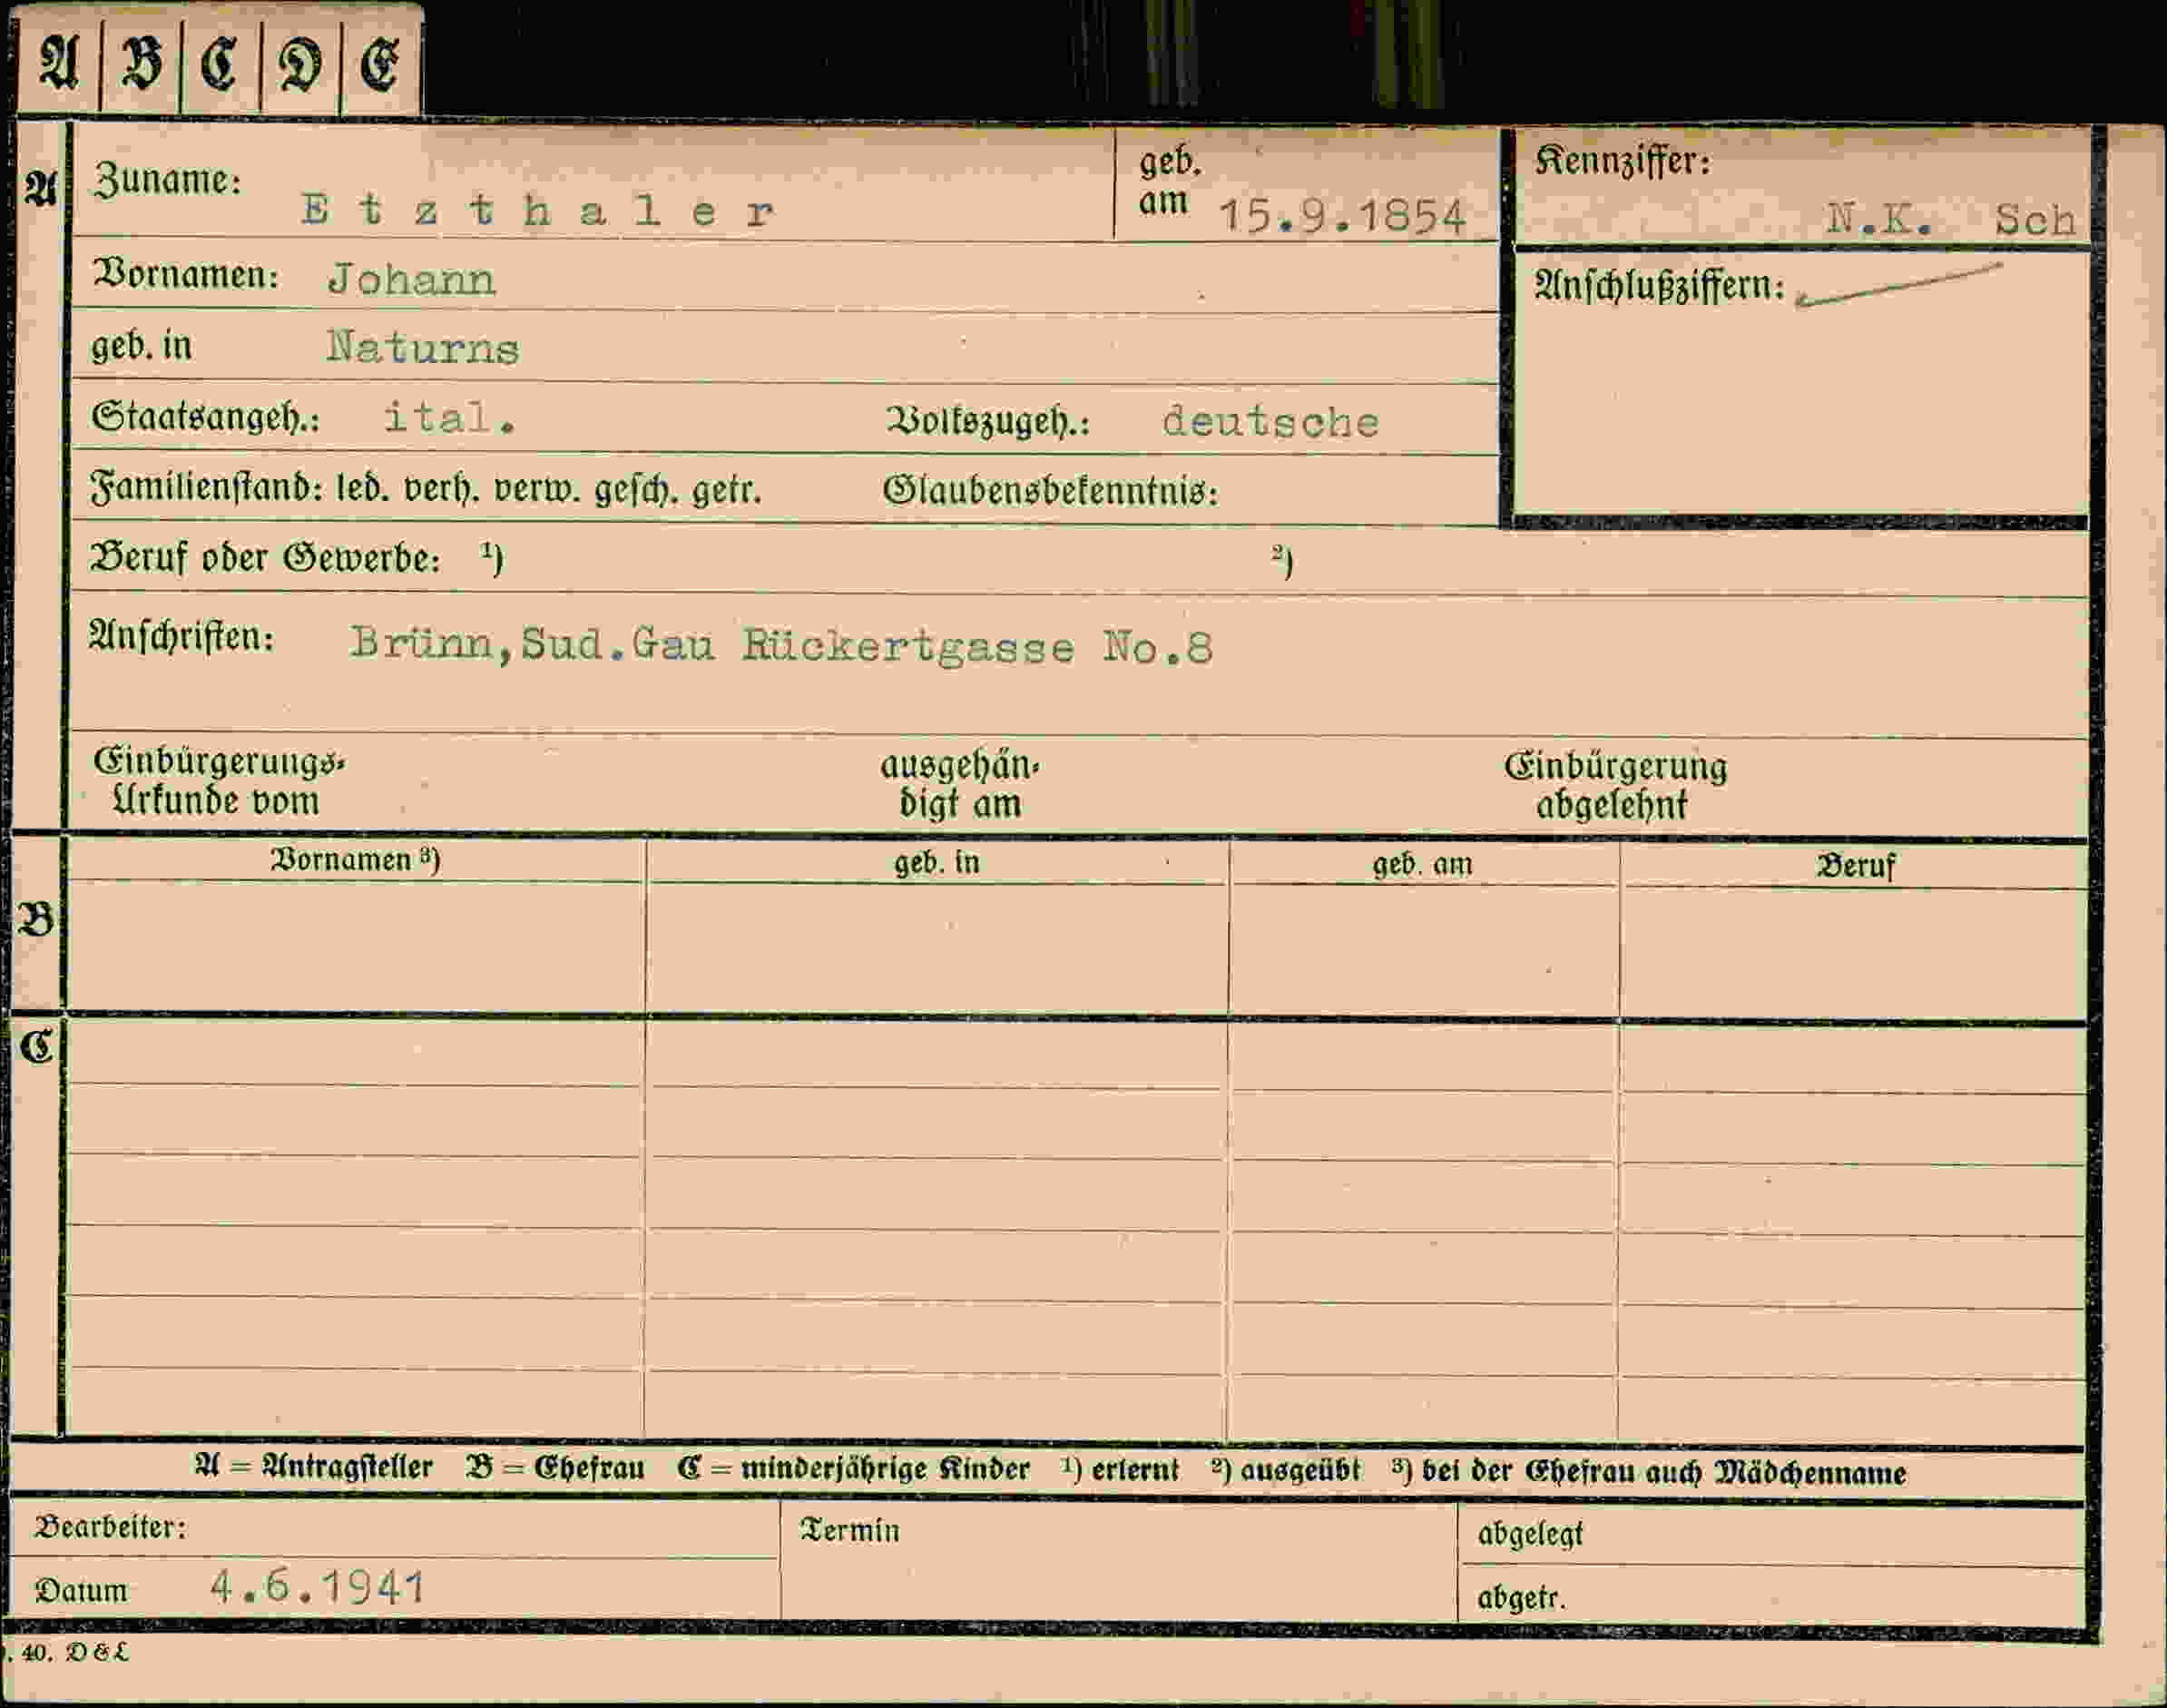 A B C D E
A Zuname: Etzthaler geb. am 15.9.1854 Kennziffer: N.K. Sch
Vornamen: Johann Anschlußziffern:
geb. in Naturns
Staatsangeh.: ital. Volkszugeh.: deutsche
Familienstand: led. verh. verw. gesch. getr. Glaubensbekenntnis:
Beruf oder Gewerbe: ¹) ²)
Anschriften: Brünn,Sud.Gau Rückertgasse No.8
Einbürgerungs- ausgehän- Einbürgerung
Urkunde vom digt am abgelehnt
B Vornamen ³) geb. in geb. am Beruf
C
A = Antragsteller B = Ehefrau C = minderjährige Kinder ¹) erlernt ²) ausgeübt ³) bei der Ehefrau auch Mädchenname
Bearbeiter: Termin abgelegt
Datum 4.6.1941 abgetr.
. 40. D & L